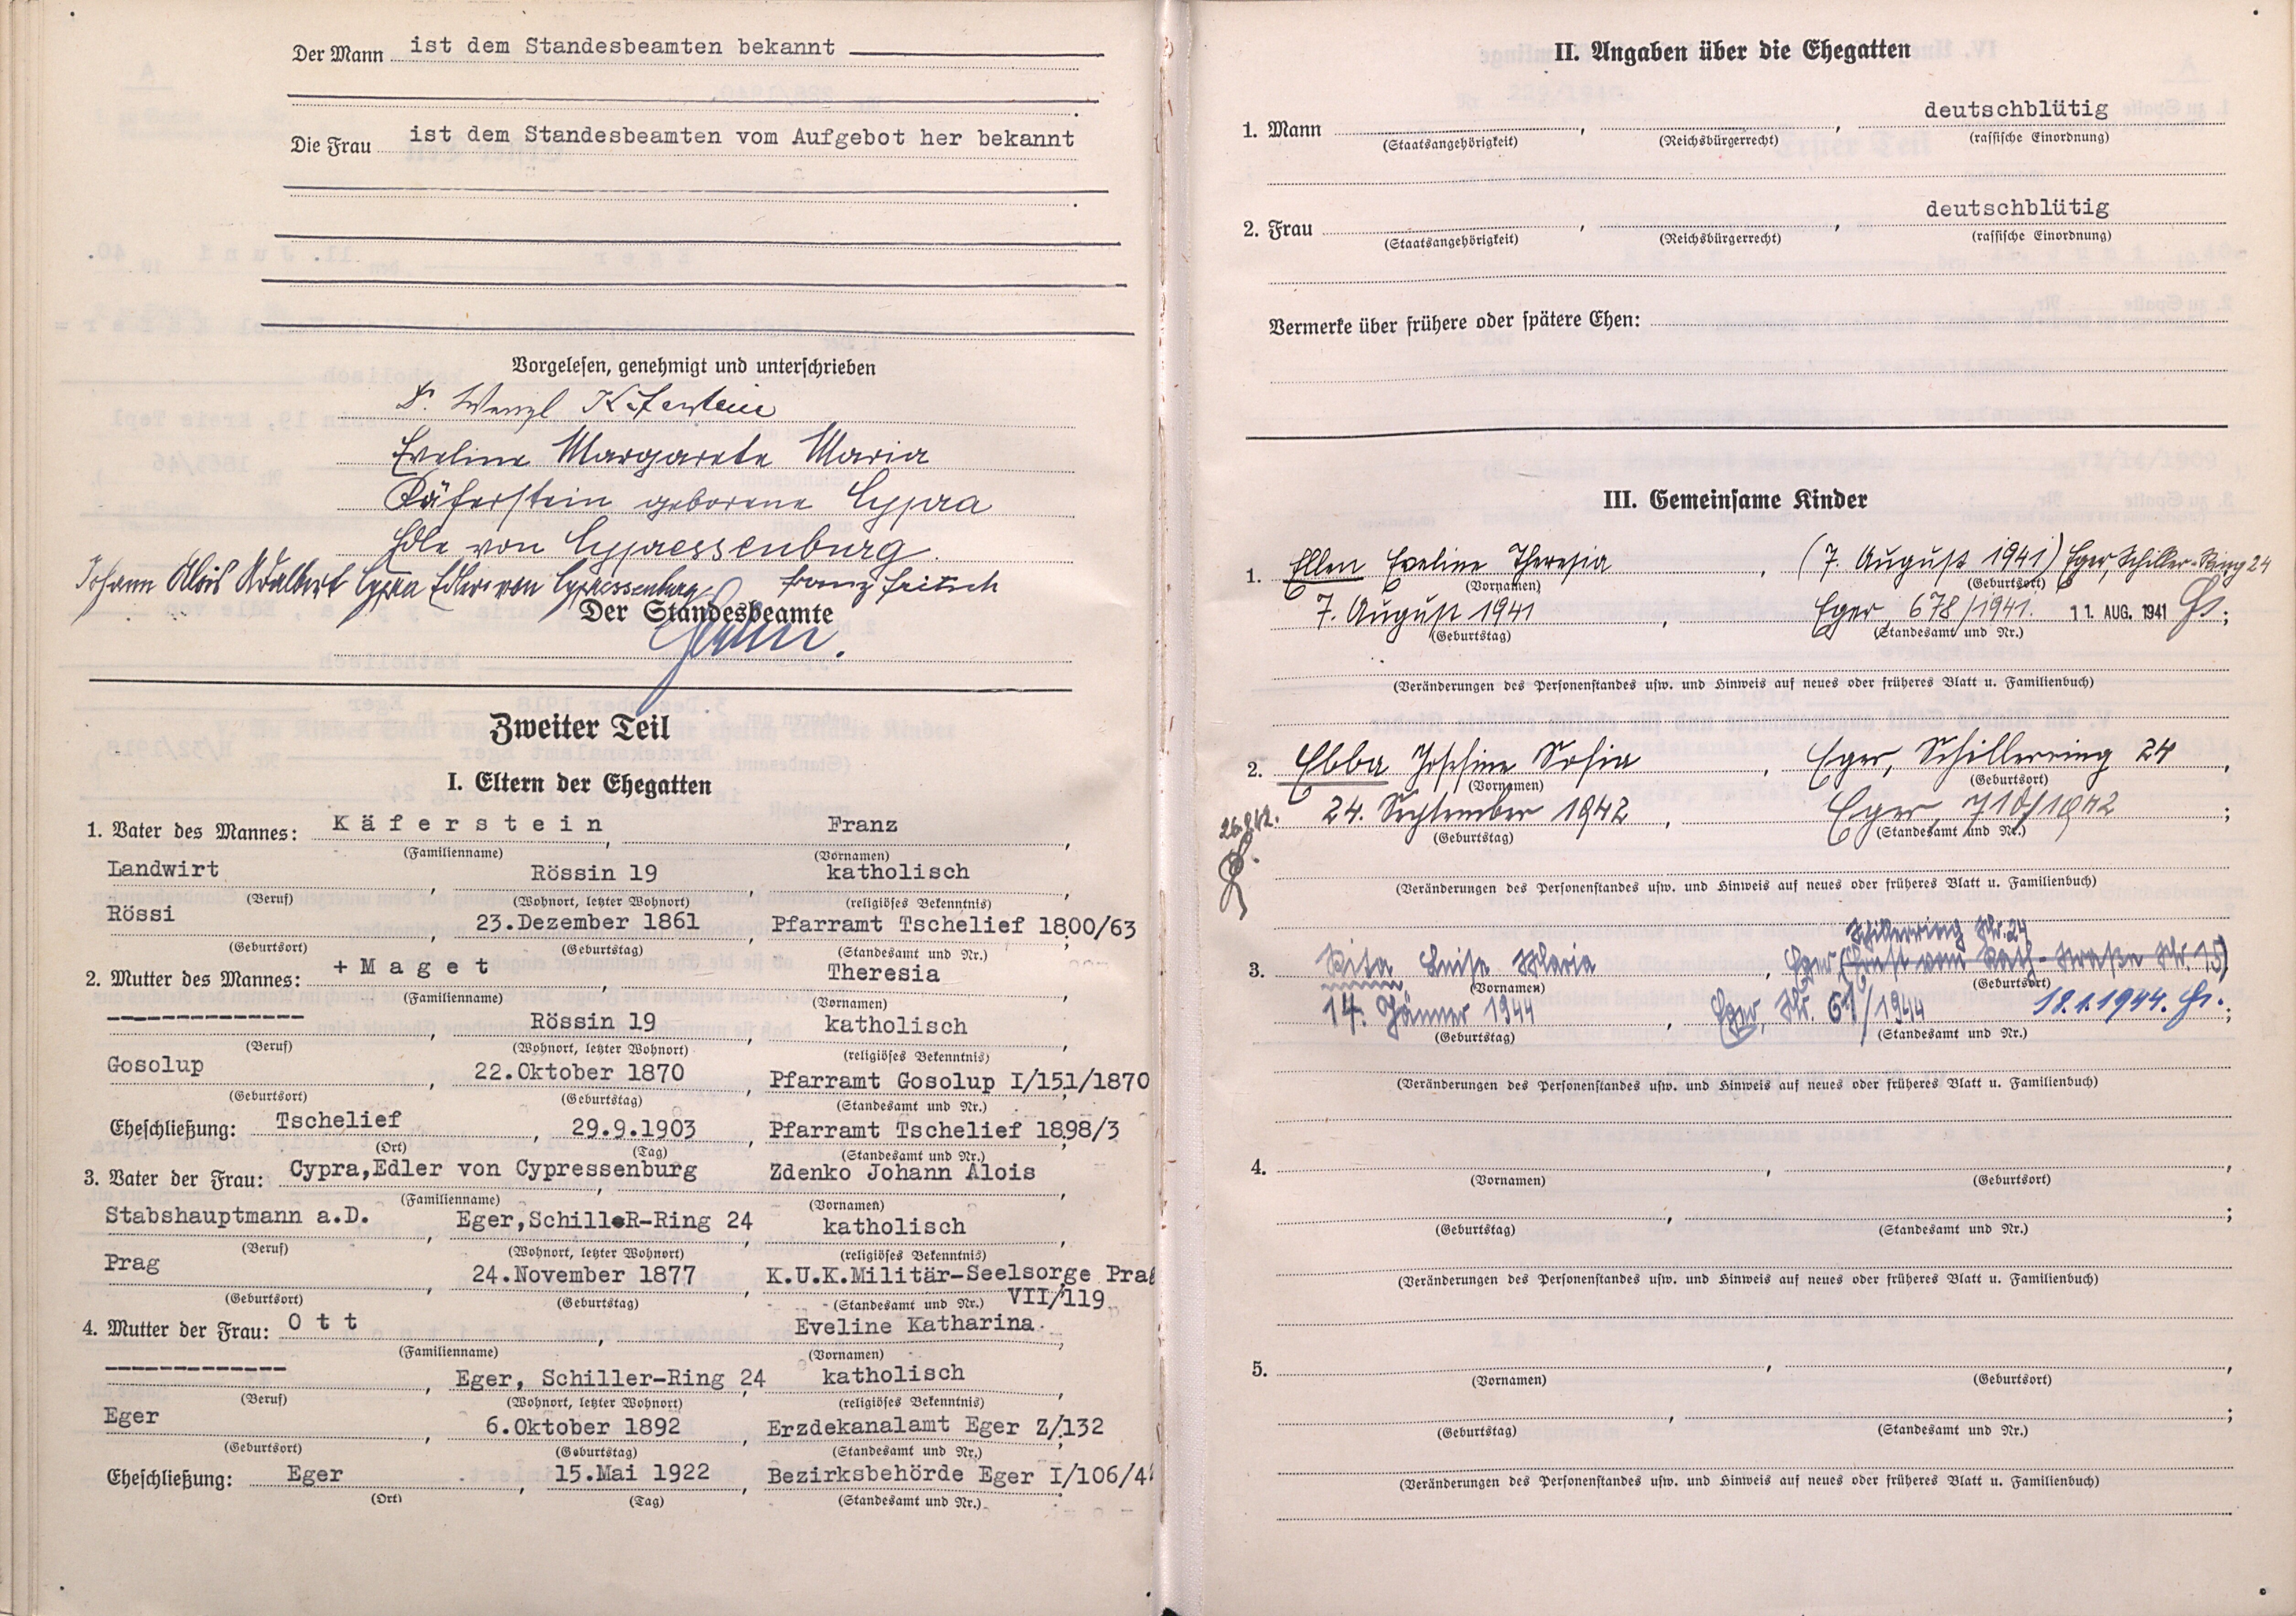 Der Mann ist dem Standesbeamten bekannt
Die Frau ist dem Standesbeamten vom Aufgebot her bekannt
Vorgelesen, genehmigt und unterschrieben
Dr. Wenzl Käferstein
Eveline Margarete Maria
Käferstein geborene Cypra
Edle von Cypressenburg.
Johann Alois Adalbert Cypra Edler von Cypressenburg Franz Fritsch
Der Standesbeamte
Zweiter Teil
I. Eltern der Ehegatten
1. Vater des Mannes: Käferstein, Franz,
(Familienname) (Vornamen)
Landwirt, Rössin 19, katholisch,
(Beruf) (Wohnort, letzter Wohnort) (religiöses Bekenntnis)
Rössi, 23.Dezember 1861, Pfarramt Tschelief 1800/63;
(Geburtsort) (Geburtstag) (Standesamt und Nr.)
2. Mutter des Mannes: +Maget, Theresia,
(Familienname) (Vornamen)
--------------, Rössin 19, katholisch,
(Beruf) (Wohnort, letzter Wohnort) (religiöses Bekenntnis)
Gosolup, 22.Oktober 1870, Pfarramt Gosolup I/151/1870
(Geburtsort) (Geburtstag) (Standesamt und Nr.)
Eheschließung: Tschelief, 29.9.1903, Pfarramt Tschelief 1898/3
(Ort) (Tag) (Standesamt und Nr.)
3. Vater der Frau: Cypra,Edler von Cypressenburg, Zdenko Johann Alois,
(Familienname) (Vornamen)
Stabshauptmann a.D., Eger,SchilleR-Ring 24, katholisch,
(Beruf) (Wohnort, letzter Wohnort) (religiöses Bekenntnis)
Prag, 24.November 1877, K.U.K.Militär-Seelsorge Prag
(Geburtsort) (Geburtstag) (Standesamt und Nr.) VII/119
4. Mutter der Frau: Ott, Eveline Katharina,
(Familienname) (Vornamen)
--------------, Eger, Schiller-Ring 24, katholisch,
(Beruf) (Wohnort, letzter Wohnort) (religiöses Bekenntnis)
Eger, 6.Oktober 1892, Erzdekanalamt Eger Z/132
(Geburtsort) (Geburtstag) (Standesamt und Nr.)
Eheschließung: Eger, 15.Mai 1922, Bezirksbehörde Eger I/106/4
(Ort) (Tag) (Standesamt und Nr.)
II. Angaben über die Ehegatten
1. Mann , , deutschblütig
(Staatsangehörigkeit) (Reichsbürgerrecht) (rassische Einordnung)
2. Frau , , deutschblütig
(Staatsangehörigkeit) (Reichsbürgerrecht) (rassische Einordnung)
Vermerke über frühere oder spätere Ehen:
III. Gemeinsame Kinder
1. Ellen Eveline Theresia, (7. August 1941) Eger, Schiller-Ring 24
(Vornamen) (Geburtsort)
7. August 1941, Eger, 678/1941. 11. AUG. 1941;
(Geburtstag) (Standesamt und Nr.)
(Veränderungen des Personenstandes usw. und Hinweis auf neues oder früheres Blatt u. Familienbuch)
2. Ebba Josefine Sofia, Eger, Schillerring 24,
(Vornamen) (Geburtsort)
24. September 1942, Eger, 710/1942;
(Geburtstag) (Standesamt und Nr.)
26.9.42.
(Veränderungen des Personenstandes usw. und Hinweis auf neues oder früheres Blatt u. Familienbuch)
Schillerring Nr. 24
3. Rita Luise Maria, Eger, (Ernst vom Rath-Straße Nr. 15)
(Vornamen) (Geburtsort)
14. Jänner 1944, Eger, Nr. 61/1944 18.1.1944.;
(Geburtstag) (Standesamt und Nr.)
(Veränderungen des Personenstandes usw. und Hinweis auf neues oder früheres Blatt u. Familienbuch)
4. , ,
(Vornamen) (Geburtsort)
, ;
(Geburtstag) (Standesamt und Nr.)
(Veränderungen des Personenstandes usw. und Hinweis auf neues oder früheres Blatt u. Familienbuch)
5. , ,
(Vornamen) (Geburtsort)
, ;
(Geburtstag) (Standesamt und Nr.)
(Veränderungen des Personenstandes usw. und Hinweis auf neues oder früheres Blatt u. Familienbuch)